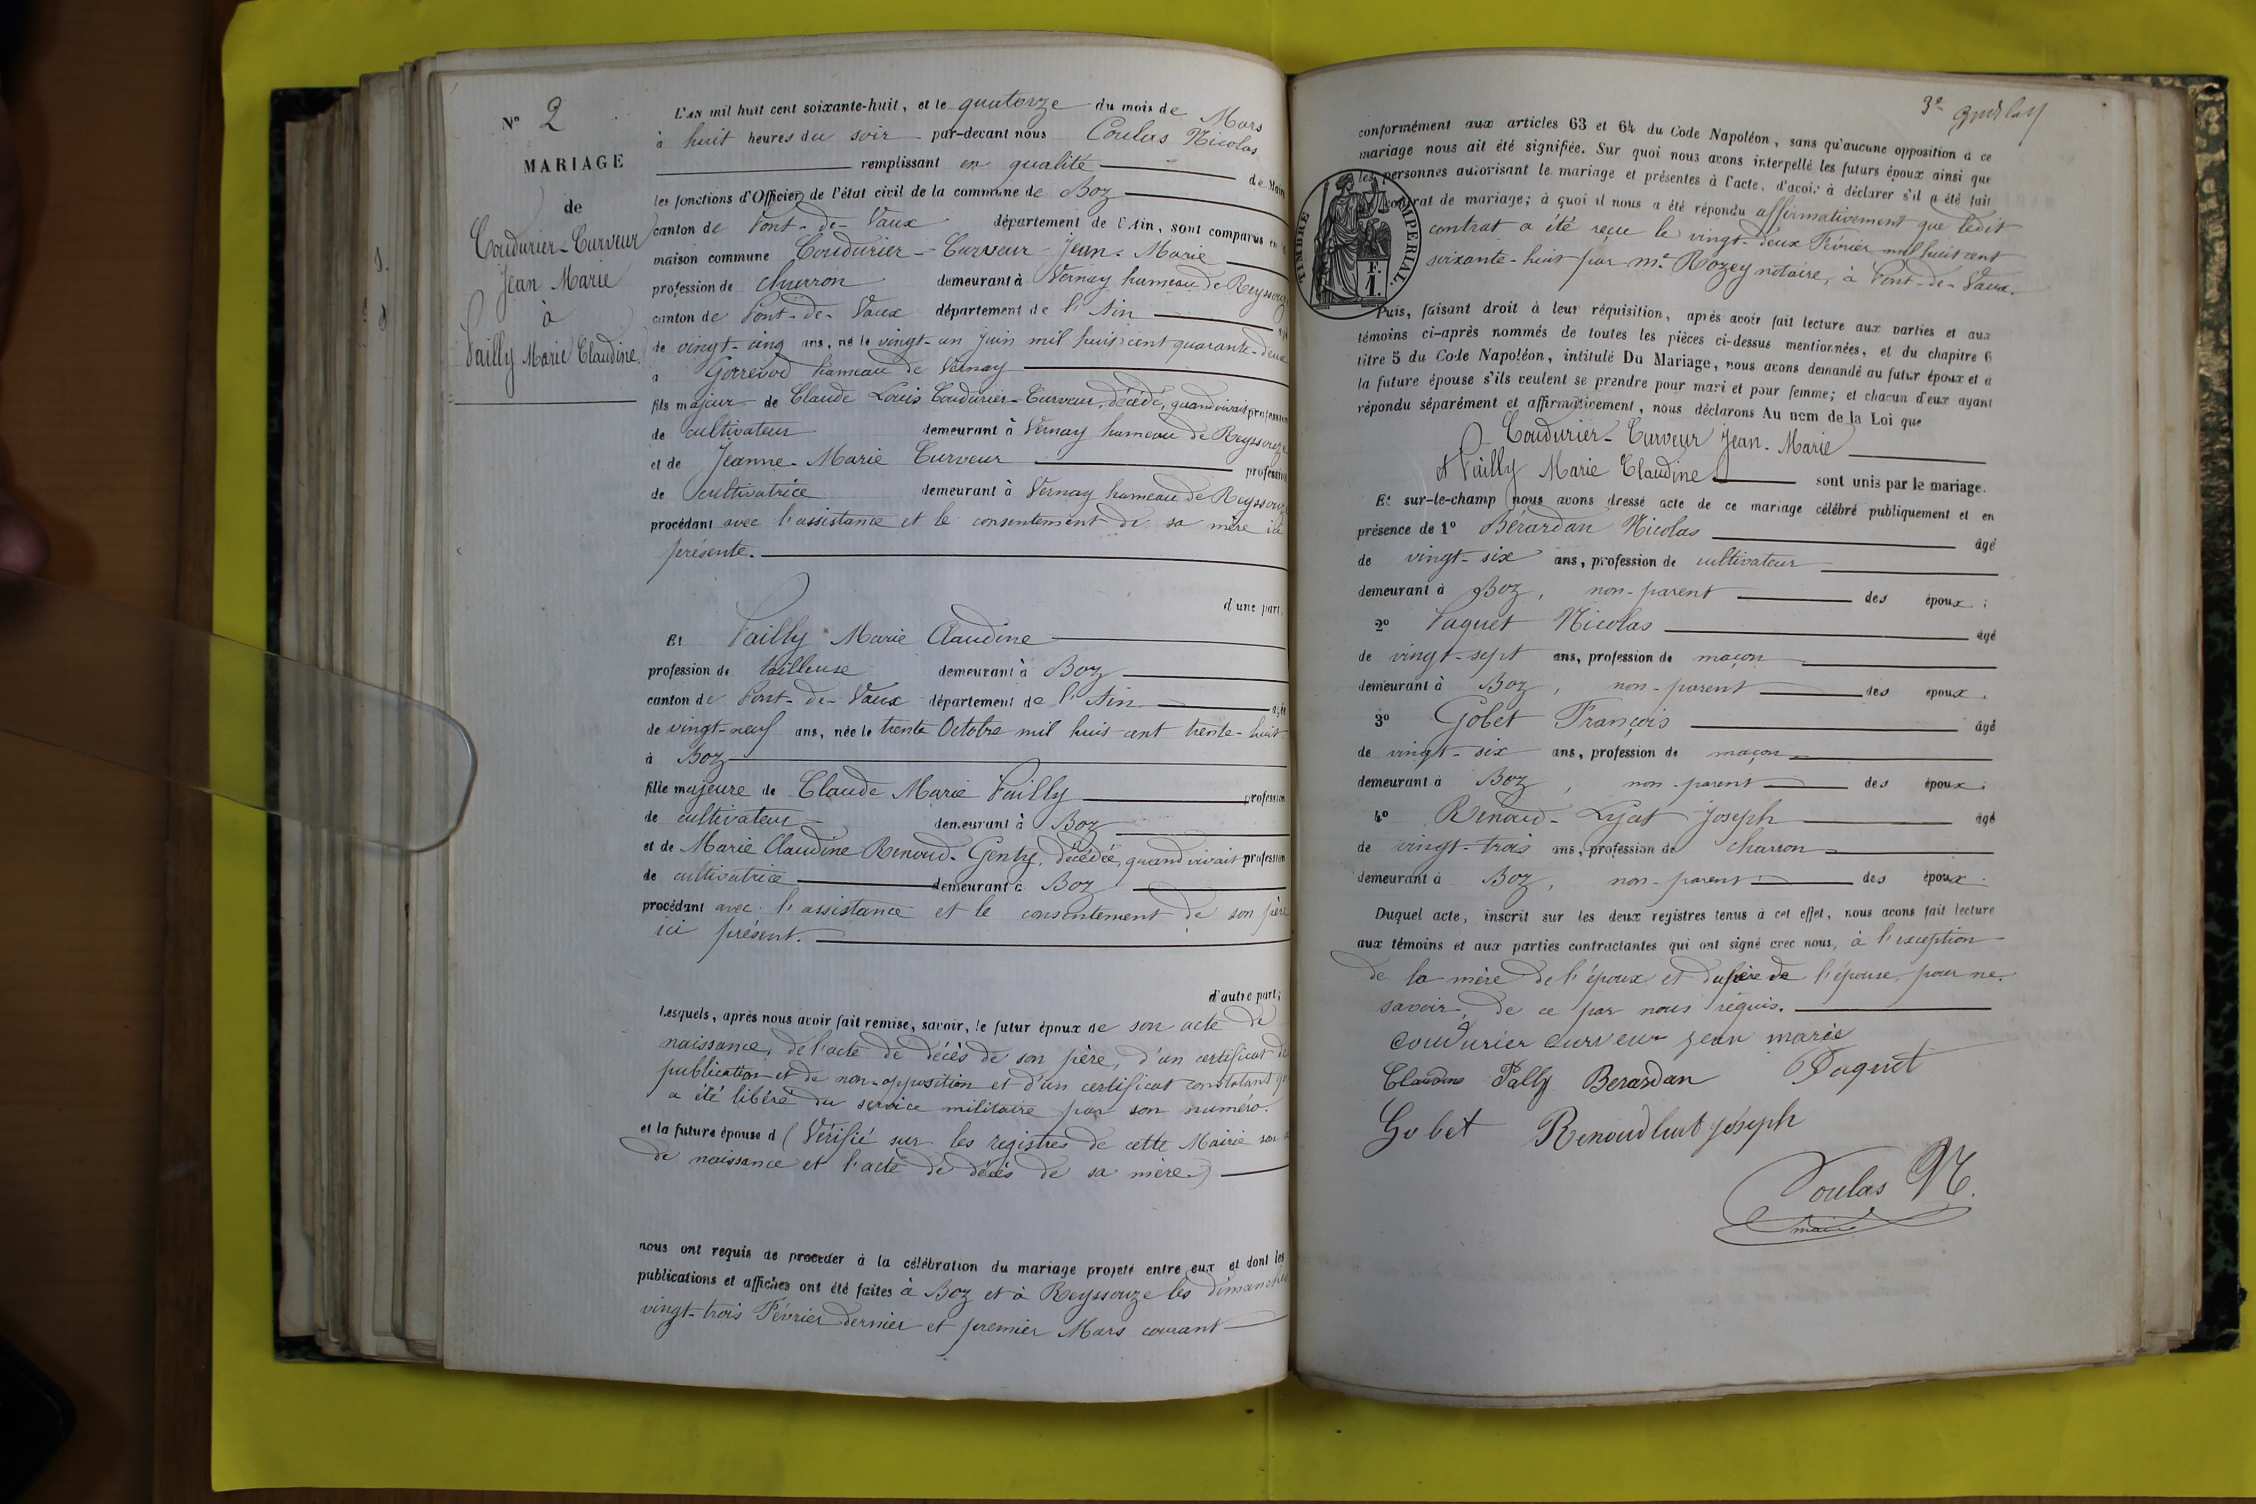 N° 2
MARIAGE
de
Coudurier-Curveur
Jean Marie
à
Pailly Marie Claudine.
L'AN mil huit cent soixante-huit, et le quatorze du mois de Mars
à huit heures du soir par-devant nous Coulas Nicolas
remplissant en qualité de Maire
les fonctions d'Officier de l'état civil de la commune de Boz
canton de Pont-de-Vaux département de l'Ain, sont comparus en la
maison commune Coudurier-Curveur Jean-Marie
profession de charron demeurant à Vernay hameau de Reyssouze
canton de Pont-de-Vaux département de l'Ain âgé
de vingt-cinq ans, né le vingt-un Juin mil huit cent quarante-deux
à Gorrevod hameau de Vernay
fils majeur de Claude Louis Coudurier-Curveur, décédé, quand vivait profession
de cultivateur demeurant à Vernay hameau de Reyssouze
et de Jeanne-Marie Curveur profession
de cultivatrice demeurant à Vernay hameau de Reyssouze
procédant avec l'assistance et le consentement de sa mère ici
présente.
d'une part.
Et Pailly Marie Claudine
profession de tailleuse demeurant à Boz
canton de Pont-de-Vaux département de l'Ain âgée
de vingt-neuf ans, née le trente Octobre mil huit cent trente-huit
à Boz
fille majeure de Claude Marie Pailly profession
de cultivateur demeurant à Boz
et de Marie Claudine Renoud-Genty, décédée, quand vivait profession
de cultivatrice demeurant à Boz
procédant avec l'assistance et le consentement de son père
ici présent.
d'autre part;
Lesquels, après nous avoir fait remise, savoir, le futur époux de son acte de
naissance, de l'acte de décès de son père, d'un certificat de
publication et de non-opposition et d'un certificat constatant qu'il
a été libéré du service militaire par son numéro.
et la future épouse d (Vérifié sur les registres de cette Mairie son
de naissance et l'acte de décès de sa mère.)
nous ont requis de procéder à la célébration du mariage projeté entre eux et dont les
publications et affiches ont été faites à Boz et à Reyssouze les dimanches
vingt-trois Février dernier et premier Mars courant
3e
conformément aux articles 63 et 64 du Code Napoléon, sans qu'aucune opposition à ce
mariage nous ait été signifiée. Sur quoi nous avons interpellé les futurs époux ainsi que
les personnes autorisant le mariage et présentes à l'acte, d'avoir à déclarer s'il a été fait
contrat de mariage; à quoi il nous a été répondu affirmativement que ledit
contrat a été reçu le vingt-deux Février mil huit cent
soixante-huit par Me Rozey notaire, à Pont-de-Vaux.
TIMBRE IMPERIAL.
F.
1.
Puis, faisant droit à leur réquisition, après avoir fait lecture aux parties et aux
témoins ci-après nommés de toutes les pièces ci-dessus mentionnées, et du chapitre 6
titre 5 du Code Napoléon, intitulé Du Mariage, nous avons demandé au futur époux et à
la future épouse s'ils veulent se prendre pour mari et pour femme; et chacun d'eux ayant
répondu séparément et affirmativement, nous déclarons Au nom de la Loi que
Coudurier-Curveur Jean-Marie
et Pailly Marie Claudine sont unis par le mariage.
Et sur-le-champ nous avons dressé acte de ce mariage célébré publiquement et en
présence de 1° Bérardan Nicolas âgé
de vingt-six ans, profession de cultivateur
demeurant à Boz, non-parent des époux;
2° Paquet Nicolas âgé
de vingt-sept ans, profession de maçon
demeurant à Boz, non-parent des époux.
3° Gobet François âgé
de vingt-six ans, profession de maçon
demeurant à Boz, non-parent des époux.
4° Renoud-Lyat Joseph âgé
de vingt-trois ans, profession de charron
demeurant à Boz, non-parent des époux.
Duquel acte, inscrit sur les deux registres tenus à cet effet, nous avons fait lecture
aux témoins et aux parties contractantes qui ont signé avec nous, à l'exception
de la mère de l'époux et du père de l'épouse pour ne
savoir, de ce par nous réquis.
coudurier curveur jean marie
Claudine Pally Berardan Paquet
Gobet Renoud lyat joseph
Coulas N.
maire